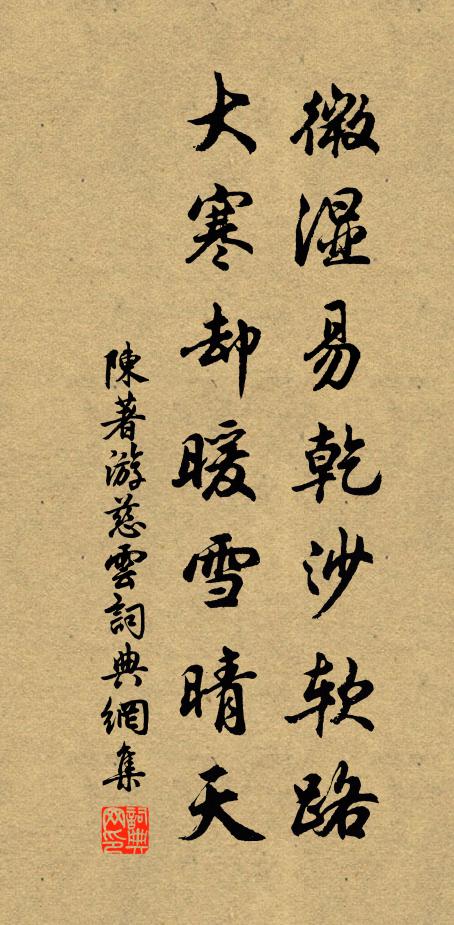 微湿易乾沙软路
大寒却暖雪晴天
陳著游慈雲詞典網集
詞典网印